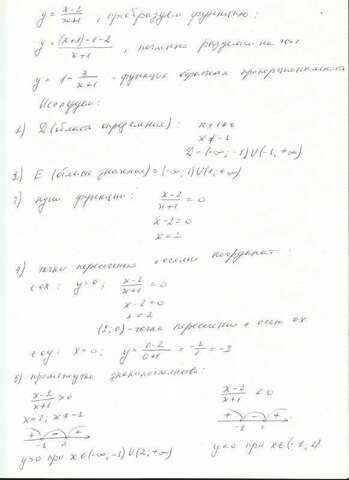 y = (x-2)/(x+1), преобразуем функцию:
y = ((x+1)-1-2)/(x+1), почленно разделим на x+1
y = 1 - 3/(x+1) - функция обратная пропорциональность
Исследуем:
1) D (область определения): x+1≠0
x≠-1
D = (-∞; -1)∪(-1; +∞)
2) E (область значения) = (-∞; 1)∪(1; +∞)
3) нули функции: (x-2)/(x+1) = 0
x-2=0
x=2
4) точки пересечения с осями координат:
с ox: y=0; (x-2)/(x+1) = 0
x-2=0
x=2
(2; 0) - точка пересечения с осью ox
с oy: x=0; y = (0-2)/(0+1) = -2/1 =
5) промежутки знакопостоянства:
(x-2)/(x+1) > 0
x=2; x≠-1
+ - +
-1 2
y>0 при x∈(-∞; -1)∪(2; +∞)
(x-2)/(x+1) < 0
+ - +
-1 2
y<0 при x∈(-1; 2)